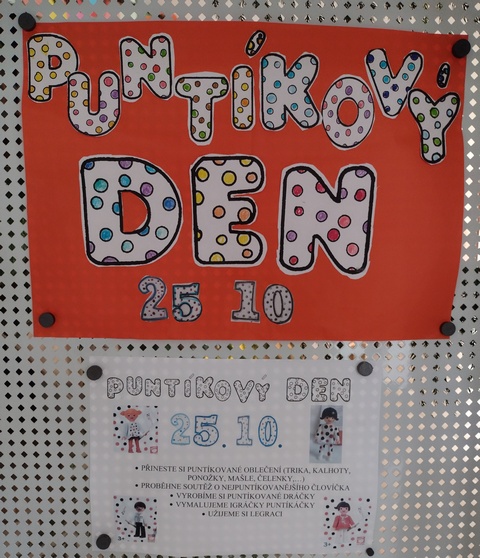 PUNTÍKOVÝ
DEN
25 10
PUNTÍKOVÝ DEN
25.10.
• PŘINESTE SI PUNTÍKOVANÉ OBLEČENÍ (TRIKA, KALHOTY,
PONOŽKY, MAŠLE, ČELENKY,…)
• PROBĚHNE SOUTĚŽ O NEJPUNTÍKOVANĚJŠÍHO ČLOVÍČKA
• VYROBÍME SI PUNTÍKOVANÉ DRÁČKY
• VYMALUJEME IGRÁČKY PUNTÍKÁČKY
• UŽIJEME SI LEGRACI